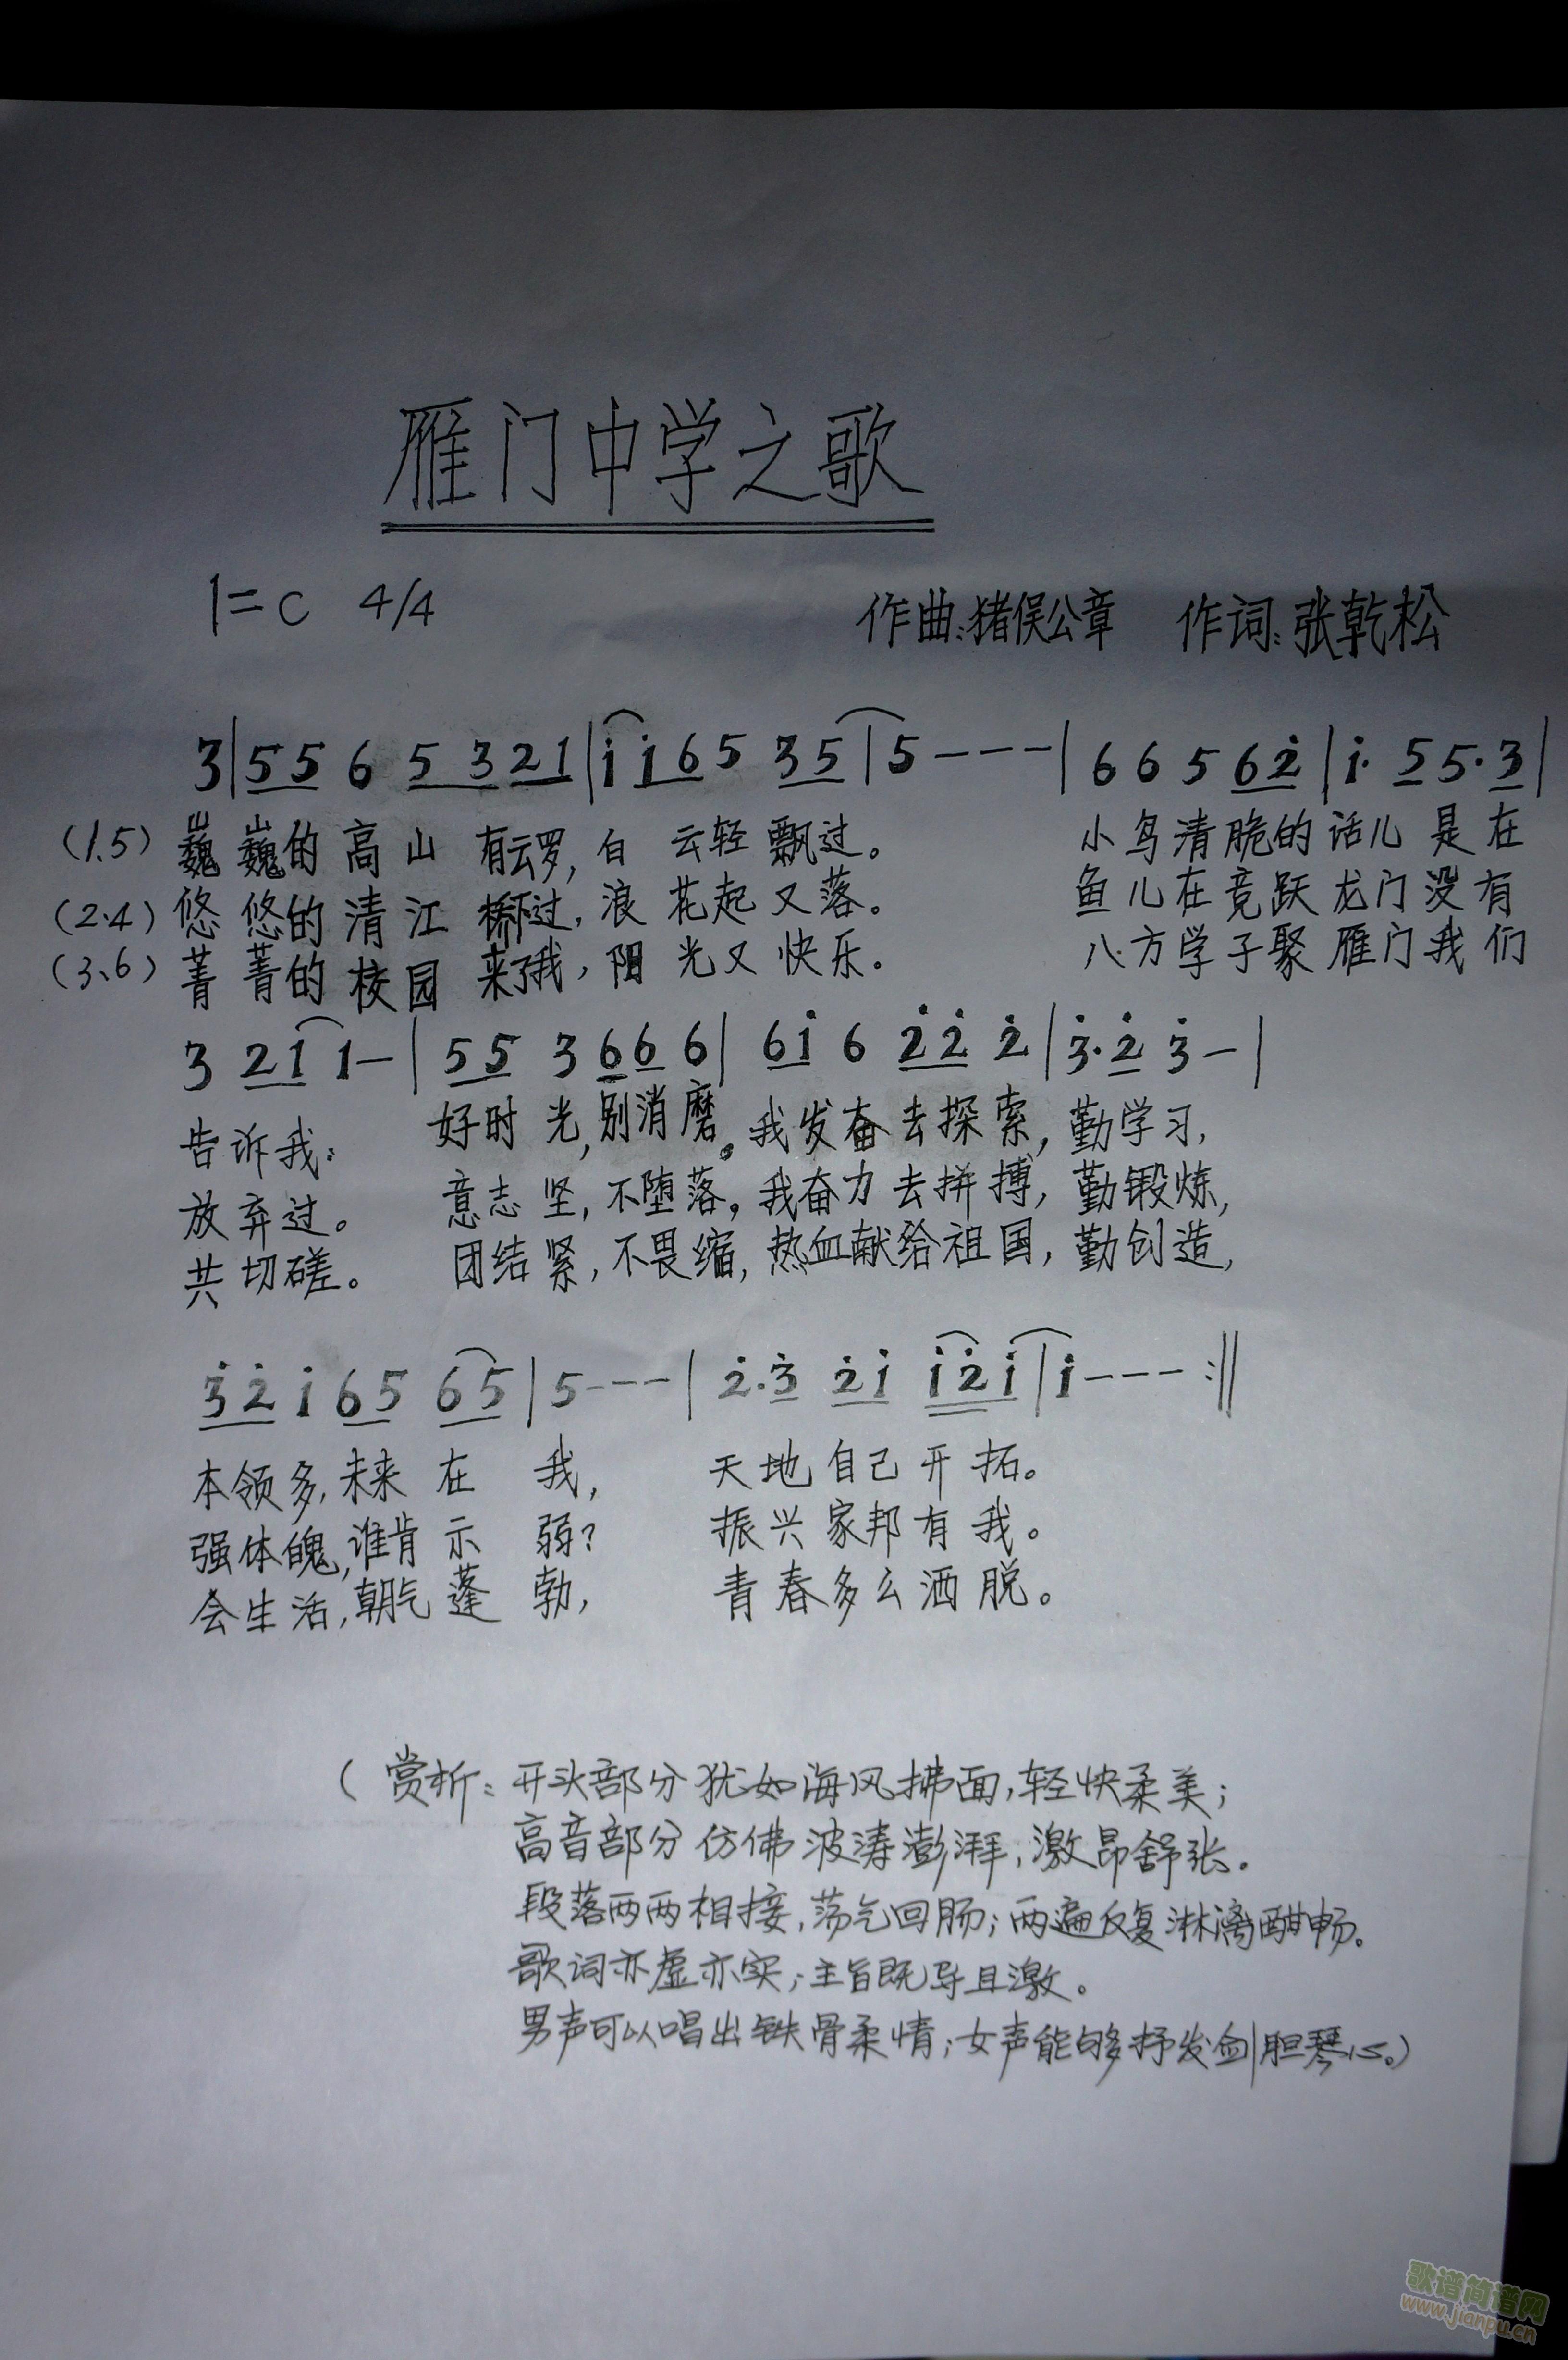 雁门中学之歌
1=C 4/4 作曲:猪俣公章 作词:张乾松
3|55 6 5 321|i i65 35|5---|6 6 5 62̇|i· 5 5·3|
(1、5) 巍巍的高山有云罗,白云轻飘过。 小鸟清脆的话儿是在
(2·4) 悠悠的清江桥下过,浪花起又落。 鱼儿在竞跃龙门没有
(3、6) 菁菁的校园来了我,阳光又快乐。 八方学子聚雁门我们
3 21 1-|55 3 66 6|6i 6 2̇2̇ 2̇|3̇·2̇ 3̇-|
告诉我: 好时光,别消磨。我发奋去探索,勤学习,
放弃过。 意志坚,不堕落。我奋力去拼搏,勤锻炼,
共切磋。 团结紧,不畏缩,热血献给祖国,勤创造,
3̇2̇ i 65 65|5---|2̇·3̇ 2̇i i2̇i|i---:||
本领多,未来在我, 天地自己开拓。
强体魄,谁肯示弱? 振兴家邦有我。
会生活,朝气蓬勃, 青春多么洒脱。
(赏析:开头部分犹如海风拂面,轻快柔美;
高音部分仿佛波涛澎湃,激昂舒张。
段落两两相接,荡气回肠;两遍反复淋漓酣畅。
歌词亦虚亦实;主旨既导且激。
男声可以唱出铁骨柔情;女声能够抒发剑胆琴心。)
歌谱简谱网
www.jianpu.cn